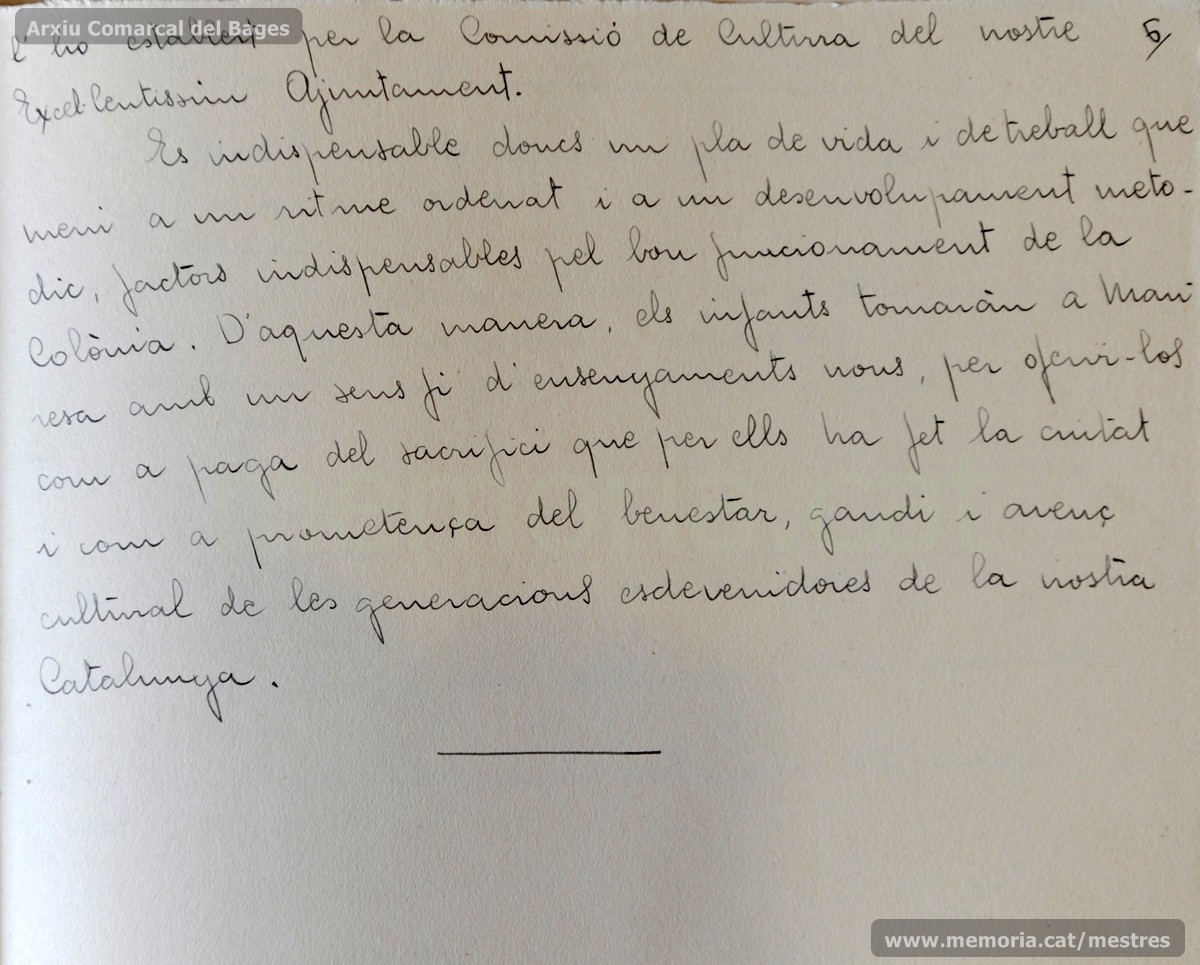 Arxiu Comarcal del Bages
l' ho establert per la Comissió de Cultura del nostre 5/
Excel·lentíssim Ajuntament.
Es indispensable doncs un pla de vida i de treball que
meni a un ritme ordenat i a un desenvolupament meto-
dic, factors indispensables pel bon funcionament de la
Colònia. D'aquesta manera, els infants tornaràn a Man-
resa amb un sens fi d'ensenyaments nous, per oferir-los
com a paga del sacrifici que per ells ha fet la ciutat
i com a prometença del benestar, gaudi i avenç
cultural de les generacions esdevenidores de la nostra
Catalunya.
www.memoria.cat/mestres